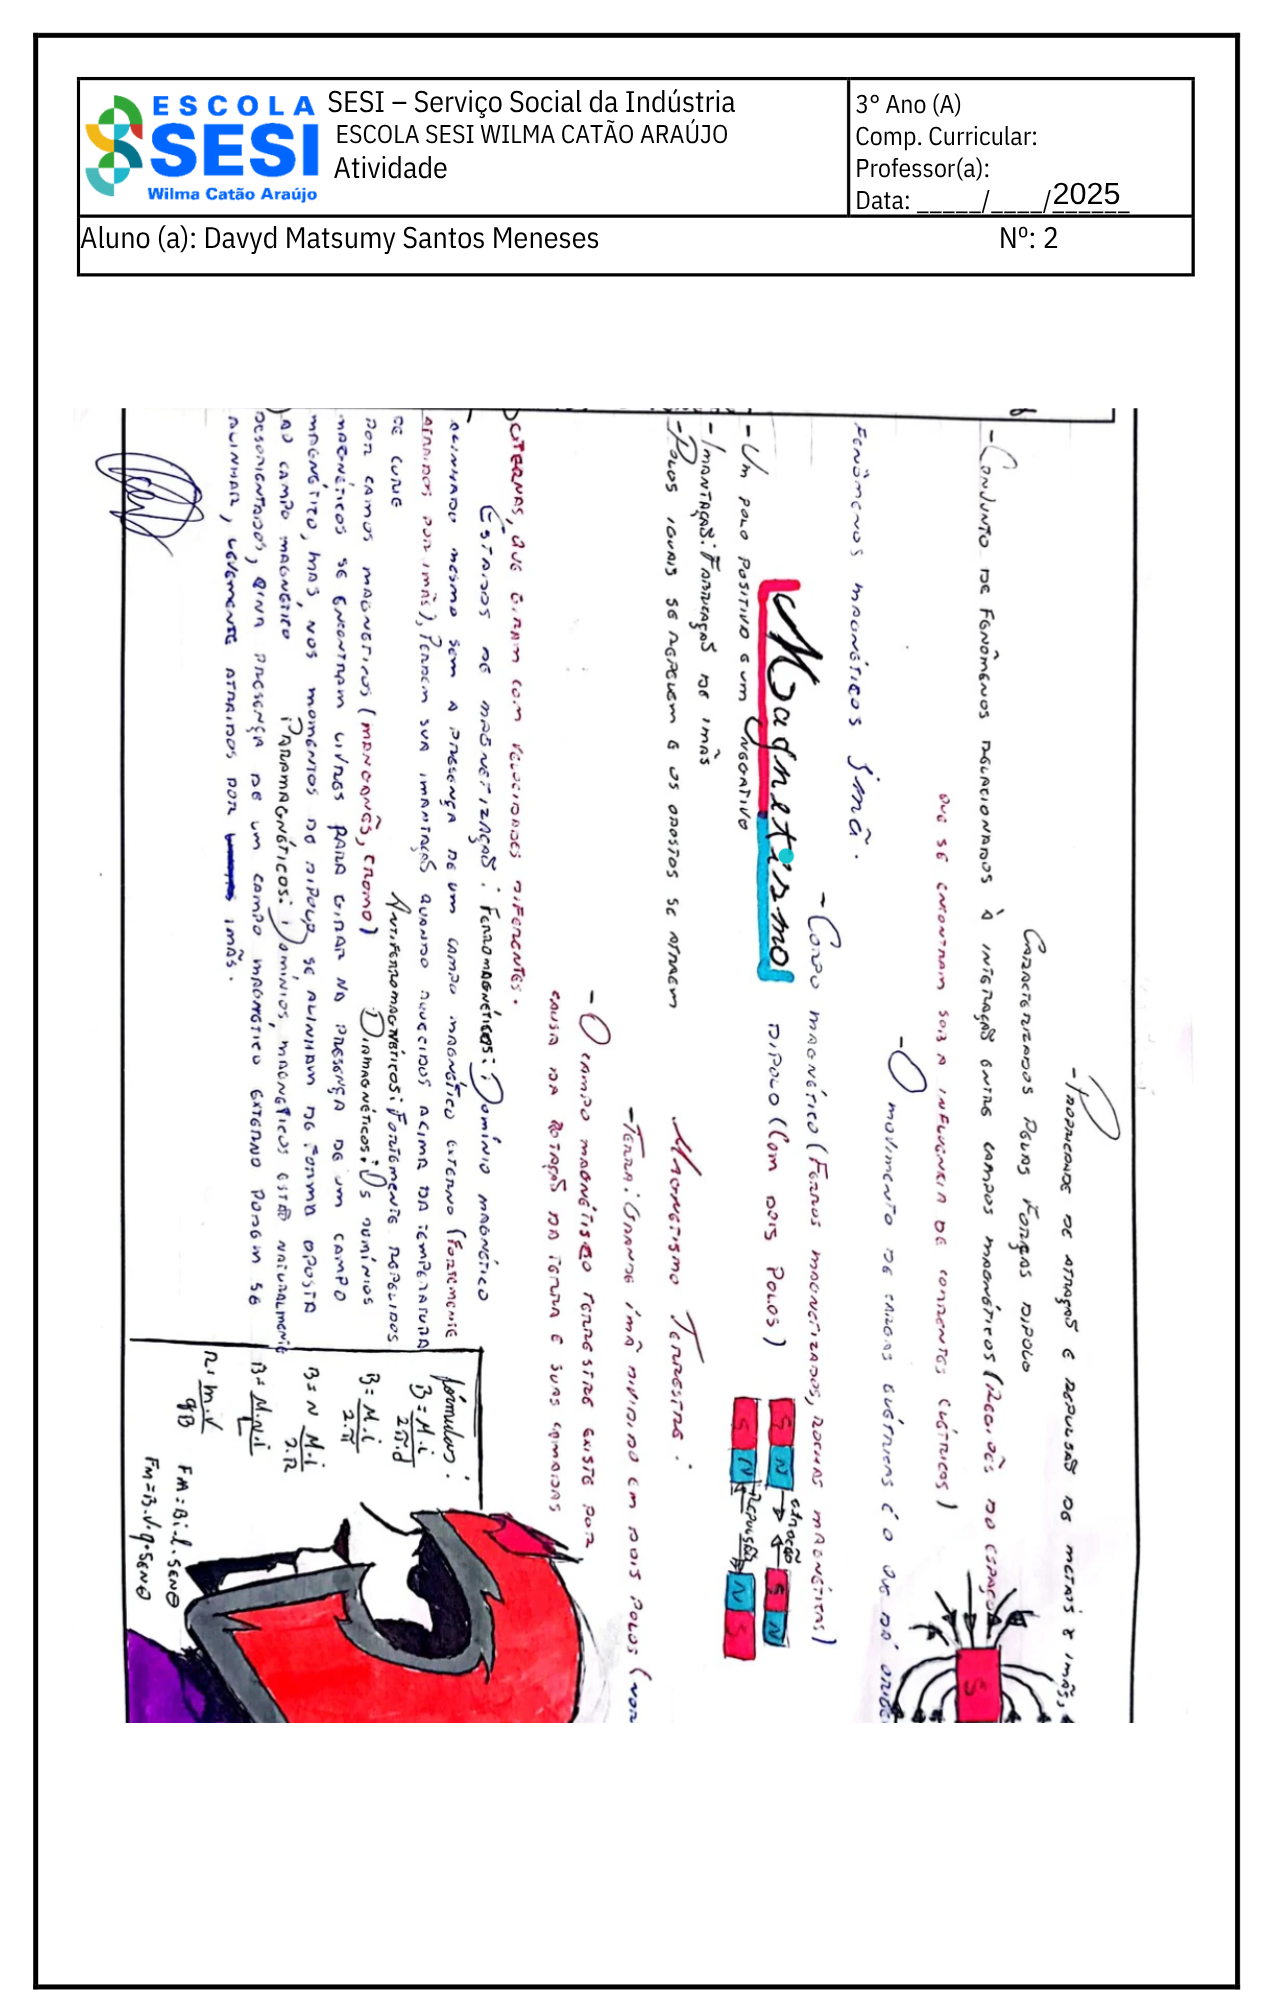 ESCOLA
SESI
Wilma Catão Araújo
SESI – Serviço Social da Indústria
ESCOLA SESI WILMA CATÃO ARAÚJO
Atividade
3° Ano (A)
Comp. Curricular:
Professor(a):
Data: _____/____/2025
Aluno (a): Davyd Matsumy Santos Meneses Nº: 2
- Propriedade de atração e repulsão de metais e imãs,
Caracterizados pelas forças dipolo
- Conjunto de fenômenos relacionados à interação entre campos magnéticos (Regiões do espaço
que se encontram sob a influência de correntes elétricas)
- O movimento de cargas elétricas é o que dá
Fenômenos magnéticos imã.
- Corpo magnético (Ferros magnetizados, rochas magnéticas)
Magnetismo
dipolo (Com dois polos)
- Um polo positivo e um negativo
- Imantação: Fabricação de imãs
- Polos iguais se repelem e os opostos se atraem
S N atração S N
S N Repulsão N S
S
Magnetismo Terrestre:
- Terra: Grande imã dividido em dois polos
- O campo magnético terrestre existe por
causa da rotação da terra e suas camadas
que giram com velocidades diferentes.
Estados de magnetização: Ferromagnéticos: Domínio magnético
alinhado mesmo sem a presença de um campo magnético externo (Fortemente
atraidos por imãs), Perdem sua imantação quando aquecidos acima da temperatura
de curie
Antiferromagnéticos: Fortemente repelidos
por camos magneticos (manganês, cromo)
Diamagnéticos: Os domínios
magnéticos se encontram livres para girar na presença de um campo
magnético, mas, nos momentos de dipolo, se alinham de forma oposta
ao campo magnético
Paramagnéticos: Domínios magnéticos estão naturalmente
desorientados, presença de um campo magnético externo podem se
alinhar, levemente atraidos por imãs.
fórmulas:
B = M.i / 2π.d
B = M.i / 2.π
B = N M.i / 2.R
B = M.N.i / L
R = m.v / qB
FM = B.i.l.senθ
FM = B.v.q.senθ